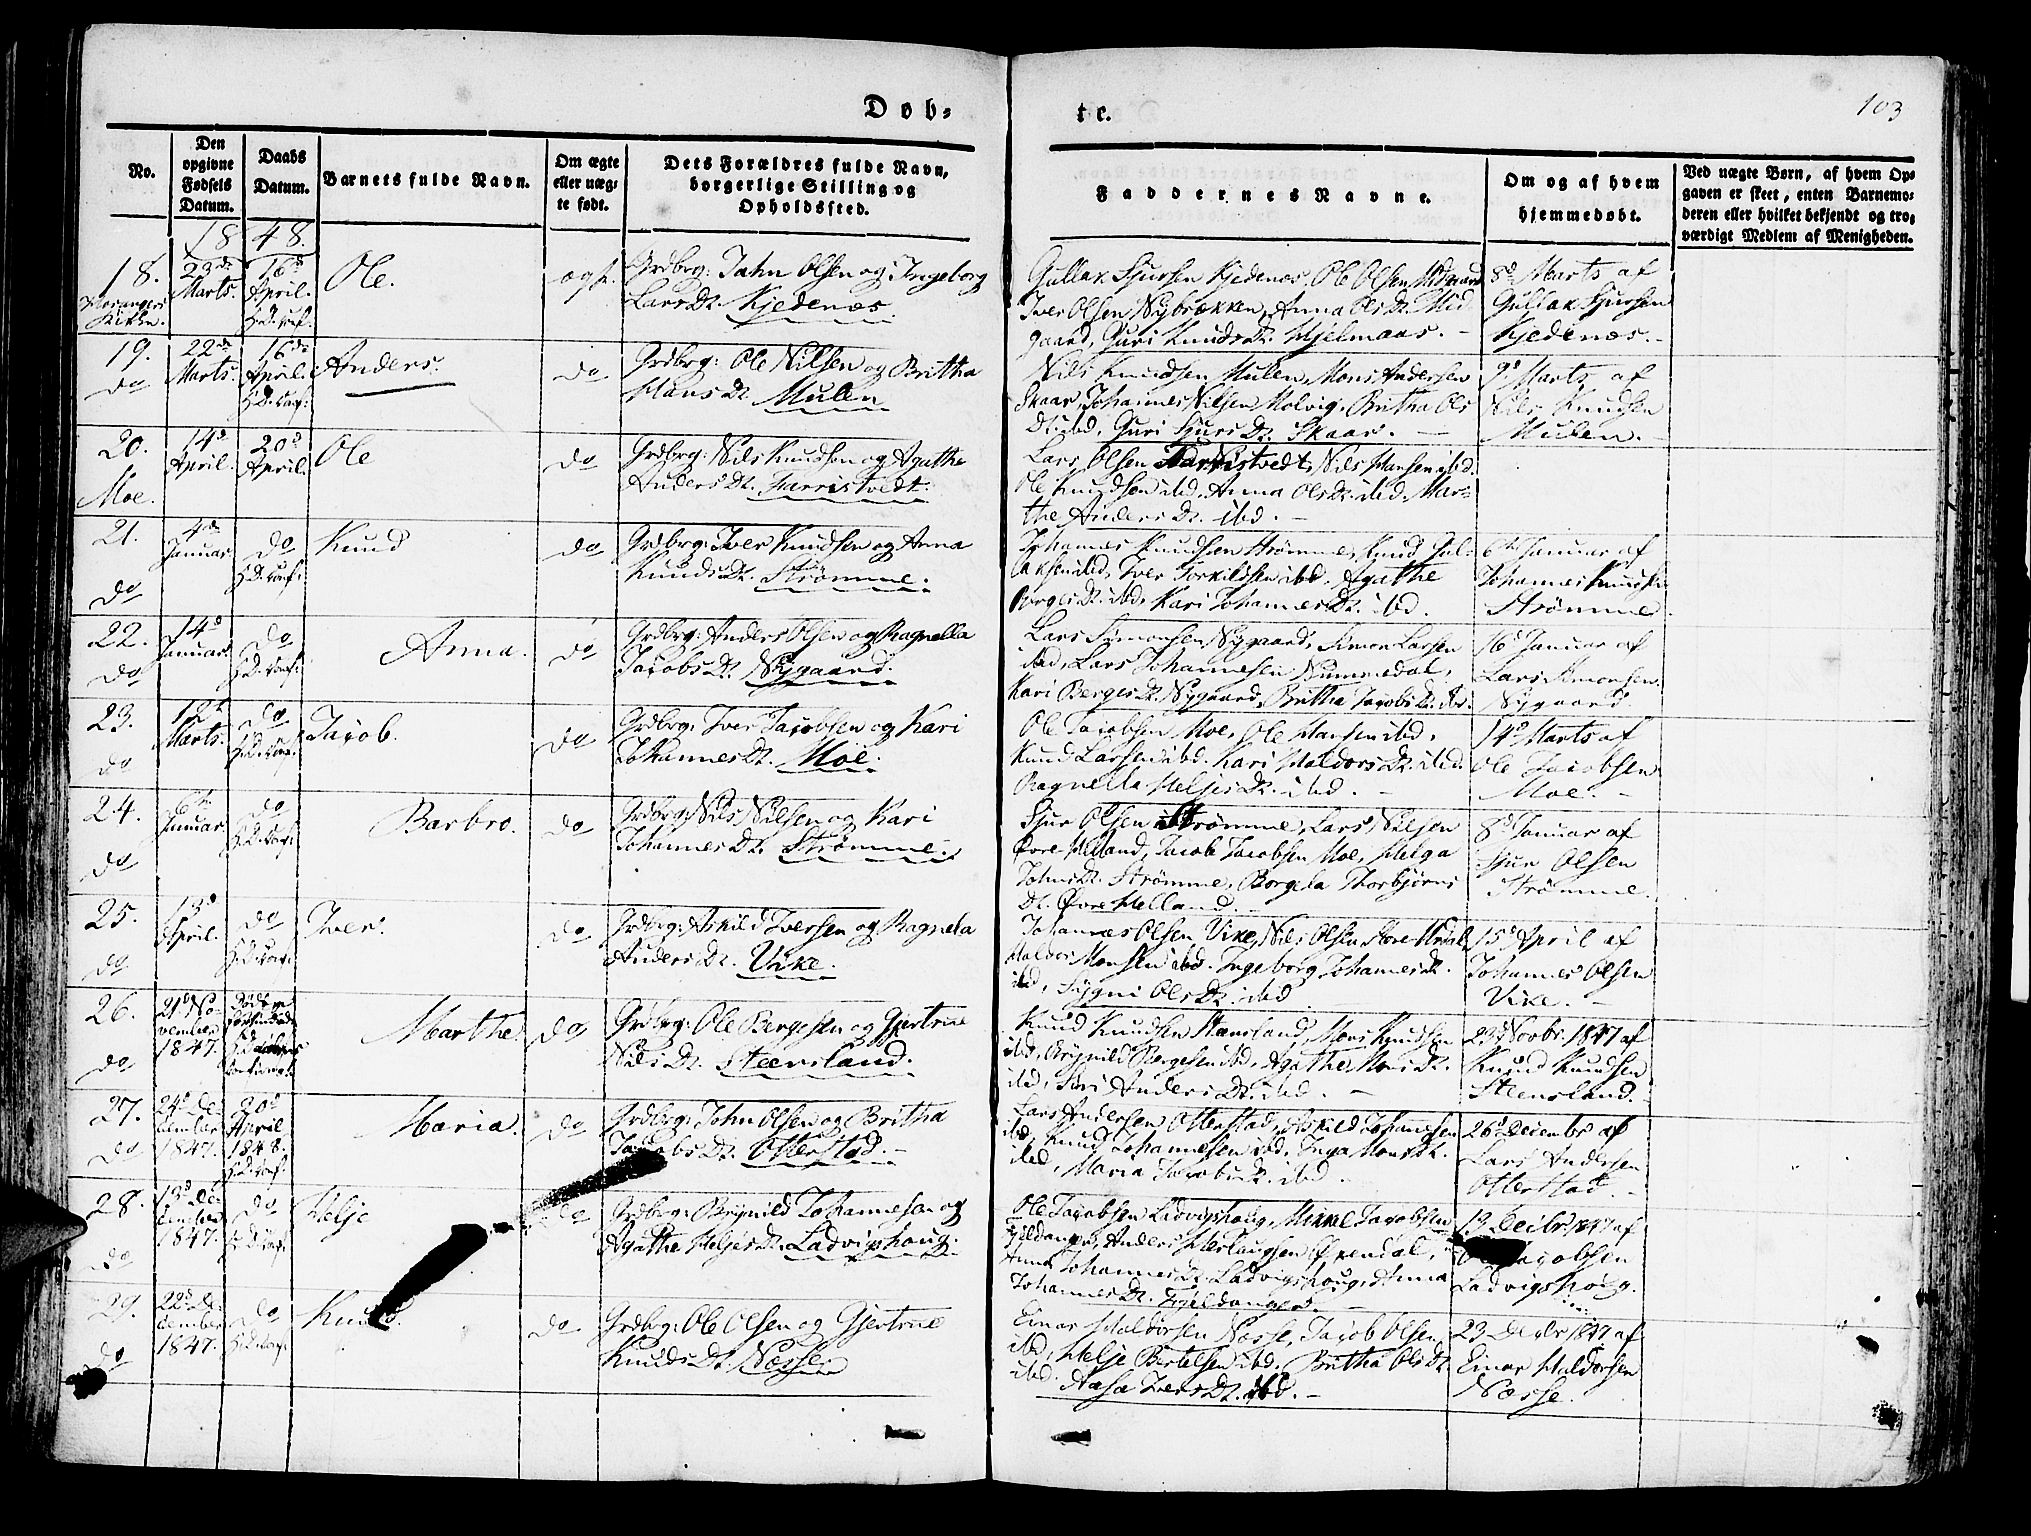 Døb-
te.
103
No.
Den opgivne Fødsels Datum.
Daabs Datum.
Barnets fulde Navn.
Om ægte eller uægte født.
Dets Forældres fulde Navn, borgerlige Stilling og Opholdssted.
Faddernes Navne.
Om og af hvem hjemmedøbt.
Ved uægte Børn, af hvem Opgaven er skeet, enten Barnemoderen eller hvilket bekjendt og troværdigt Medlem af Menigheden.
1848.
18.
Kirke.
23de Marts.
16de April.
Ole.
Grdbrg: John Olsen og Ingeborg
Lars Dt. Kjedenæs.
Gullak Sjursen Kjedenæs, Ole Olsen Midgaard
Iver Olsen Nybrækken, Anna Ols Dt. Mid
gaard, Guri Knuds Dt. Hjelmaas. -
8d Marts af
Gullak Sjursen
Kjedenæs. -
19.
do
22de Marts.
16de April.
Anders.
do
Grdbrg: Ole Nilsen og Britha
Hans Dt. Mulen
Nils Knudsen Mulen, Mons Andersen
Skaar, Johannes Nilsen Molvig, Britha Ols
Dt. ibd, Guri Sjurs Dt. Skaar. -
9d Marts af
Nils Knudsen
Mulen. -
20.
Moe.
14d April.
20d April.
Ole
do
Grdbrg: Nils Knudsen og Agathe
Anders Dt. Farristvedt.
Lars Olsen Farristvedt, Nils Hansen ibd.
Ole Knudsen ibd, Anna Ols Dt. ibd, Mar-
the Anders Dt. ibd. -
21.
do
4de Januar.
do
Knud
do
Grdbrg: Iver Knudsen og Anna
Knuds Dt. Strømme.
Johannes Knudsen Strømme, Knud Gul-
aksen ibd, Iver Torkildsen ibd. Agathe
Berges Dt. ibd, Kari Johannes Dt. ibd.
6te Januar af
Johannes Knudsen
Strømme.
22.
do
14d Januar.
do
Anna.
do
Grdbrg: Anders Olsen og Ragnella
Jacobs Dt. Nygaard.
Lars Simonsen Nygaard, Simon Larsen
ibd, Lars Johannesen Nummedal,
Kari Berges Dt. Nygaard, Britha Jacobs Dt. ibd.
16d Januar af
Lars Simonsen
Nygaard
23.
do
12te Marts.
do
Jacob.
do
Grdbrg: Iver Jacobsen og Kari
Johannes Dt. Moe.
Ole Jacobsen Moe, Ole Hansen ibd,
Knud Larsen ibd. Kari Haldors Dt. ibd.
Ragnella Heljes Dt. ibd. -
14d Marts af
Ole Jacobsen
Moe. -
24.
do
6te Januar.
do
Barbro.
do
Grdbrg: Nils Nilsen og Kari
Johannes Dt. Strømme.
Sjur Olsen Strømme, Lars Nilsen
Øvre Helland, Jacob Jacobsen Moe, Helga
Johns Dt. Strømme, Borgela Thorbjørns
Dt. Øvre Helland. -
8d Januar af
Sjur Olsen
Strømme.
25.
do
13d April.
do
Iver.
do
Grdbrg: Askild Iversen og Ragnela
Anders Dt. Vike.
Johannes Olsen Vike, Nils Olsen Store Urdal,
Haldor Monsen ibd. Ingeborg Johannes Dt.
ibd, Sygni Ols Dt. ibd
15d April af
Johannes Olsen
Vike. -
26.
do
21d November 1847.
Marthe
do
Grdbrg: Ole Bergesen og Gjertrue
Nils Dt. Steensland.
Knud Knudsen Steensland, Mons Knudsen
ibd, Brynild Bergesen ibd, Agathe Mons Dt.
ibd, Siri Anders Dt. ibd. -
23d Novbr. 1847 af
Knud Knudsen
Steensland.
27.
do
24d December 1847.
20d April 1848.
Maria.
do
Grdbrg: John Olsen og Britha
Jacobs Dt. Otterstad. -
Lars Andersen Otterstad, Askild Johannesen
ibd, Knud Johannesen ibd, Inga Mons Dt.
ibd, Maria Jacobs Dt. ibd. -
26d Decembr af
Lars Andersen
Otterstad. -
28.
do
13d December 1847.
do
Helje
do
Grdbrg: Brynild Johannesen og
Agathe Heljes Dt. Ladvigshoug.
Ole Jacobsen Ladvigshoug, Mikkel Jacobsen
Fjeldanger, Anders Herlaugsen Øxendal,
Anna Johannes Dt. Ladvigshoug, Anna
Johannes Dt. Fjeldanger. -
1847 af
Ole Jacobsen
Ladvigshoug.
29.
do
22d December 1847.
do
Knud.
do
Grdbrg: Ole Olsen og Gjertrue
Knuds Dt. Næsse
Einar Haldorsen Næsse, Jacob Olsen
ibd, Helje Bertelsen ibd. Britha Ols Dt.
ibd. Aasa Ivers Dt. ibd. -
23 Decbr 1847 af
Einar Haldorsen
Næsse.